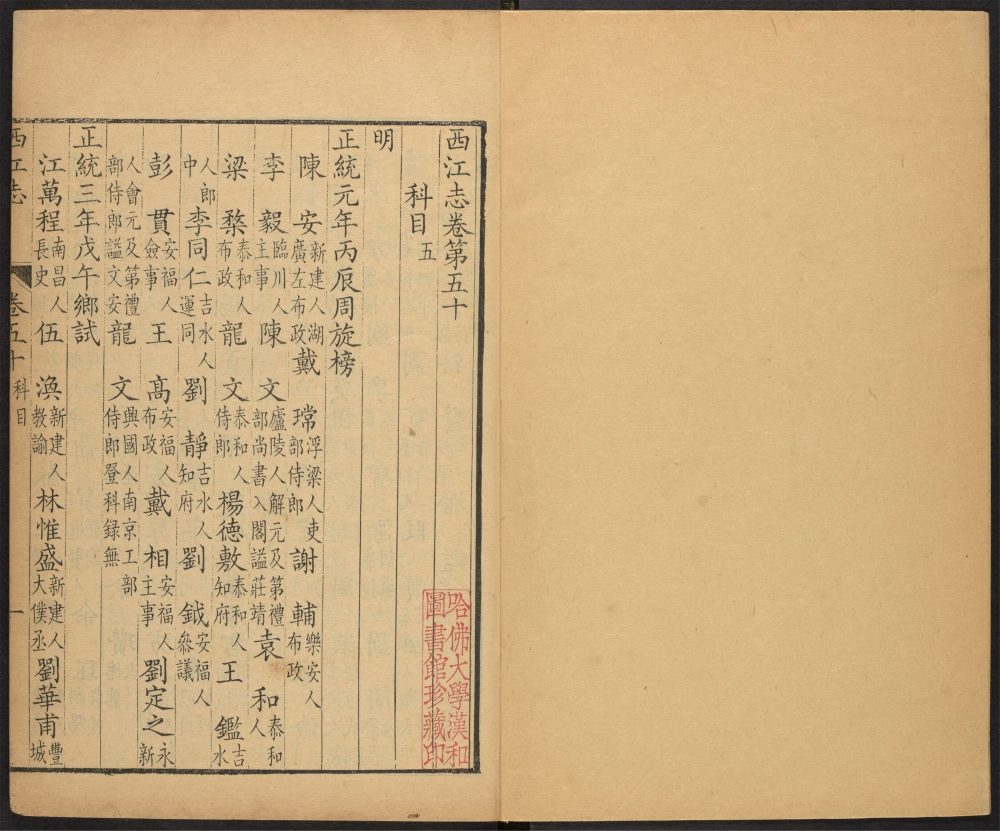 西江志卷第五十
科目五
明
正統元年丙辰周旋榜
陳安新建人湖廣左布政戴㻶浮梁人吏部侍郎謝輔樂安人布政
李毅臨川人主事陳文廬陵人解元及第禮部尚書入閣謚莊靖袁和泰和人
梁棨泰和人布政龍文泰和人侍郎楊德敷泰和人知府王鑑吉水
人郎中李同仁吉水人運同劉靜吉水人知府劉鉞安福人叅議
彭貫安福人僉事王高安福人布政戴相安福人主事劉定之永新
人會元及第禮部侍郎謚文安龍文興國人南京工部侍郎登科録無
正統三年戊午鄉試
江萬程南昌人長史伍渙新建人教諭林惟盛新建人大僕丞劉華甫豐城
西江志
卷五十
科目
一
哈佛大學漢和圖書館珍藏印